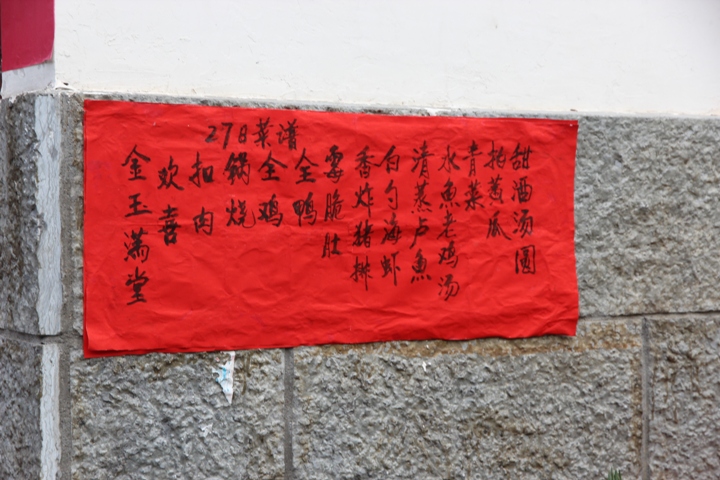 27日菜谱
金玉满堂
欢喜
扣肉
锅烧
全鸡
全鸭
脆肚
香炸猪排
白勺海虾
清蒸卢魚
水魚老鸡汤
青菜
拍瓜
甜酒汤圆